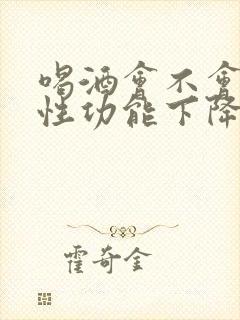 喝酒會不會
性功能下降
霍奇金